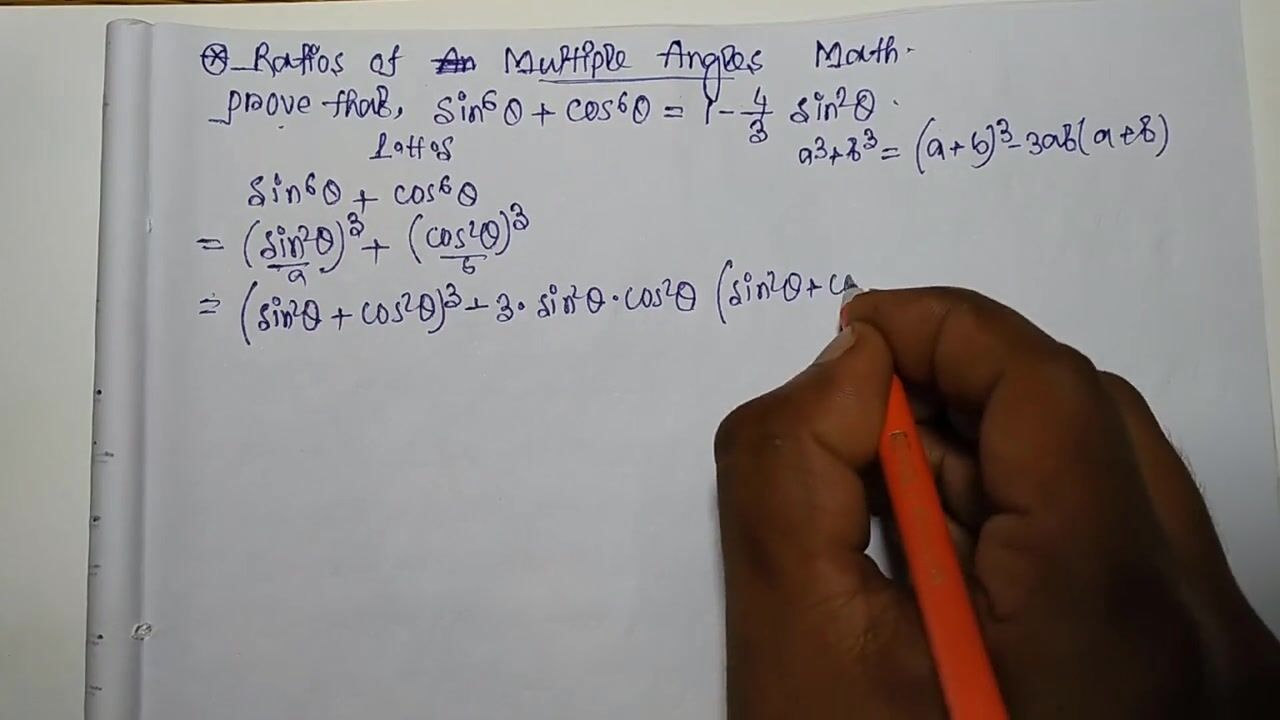 Ratios of Multiple Angles Math.
prove that, sin⁶θ + cos⁶θ = 1 - 4/3 sin²θ.
a³+b³ = (a+b)³-3ab(a+b)
sin⁶θ + cos⁶θ
= (sin²θ)³ + (cos²θ)³
a b
= (sin²θ + cos²θ)³ - 3·sin²θ·cos²θ (sin²θ + co